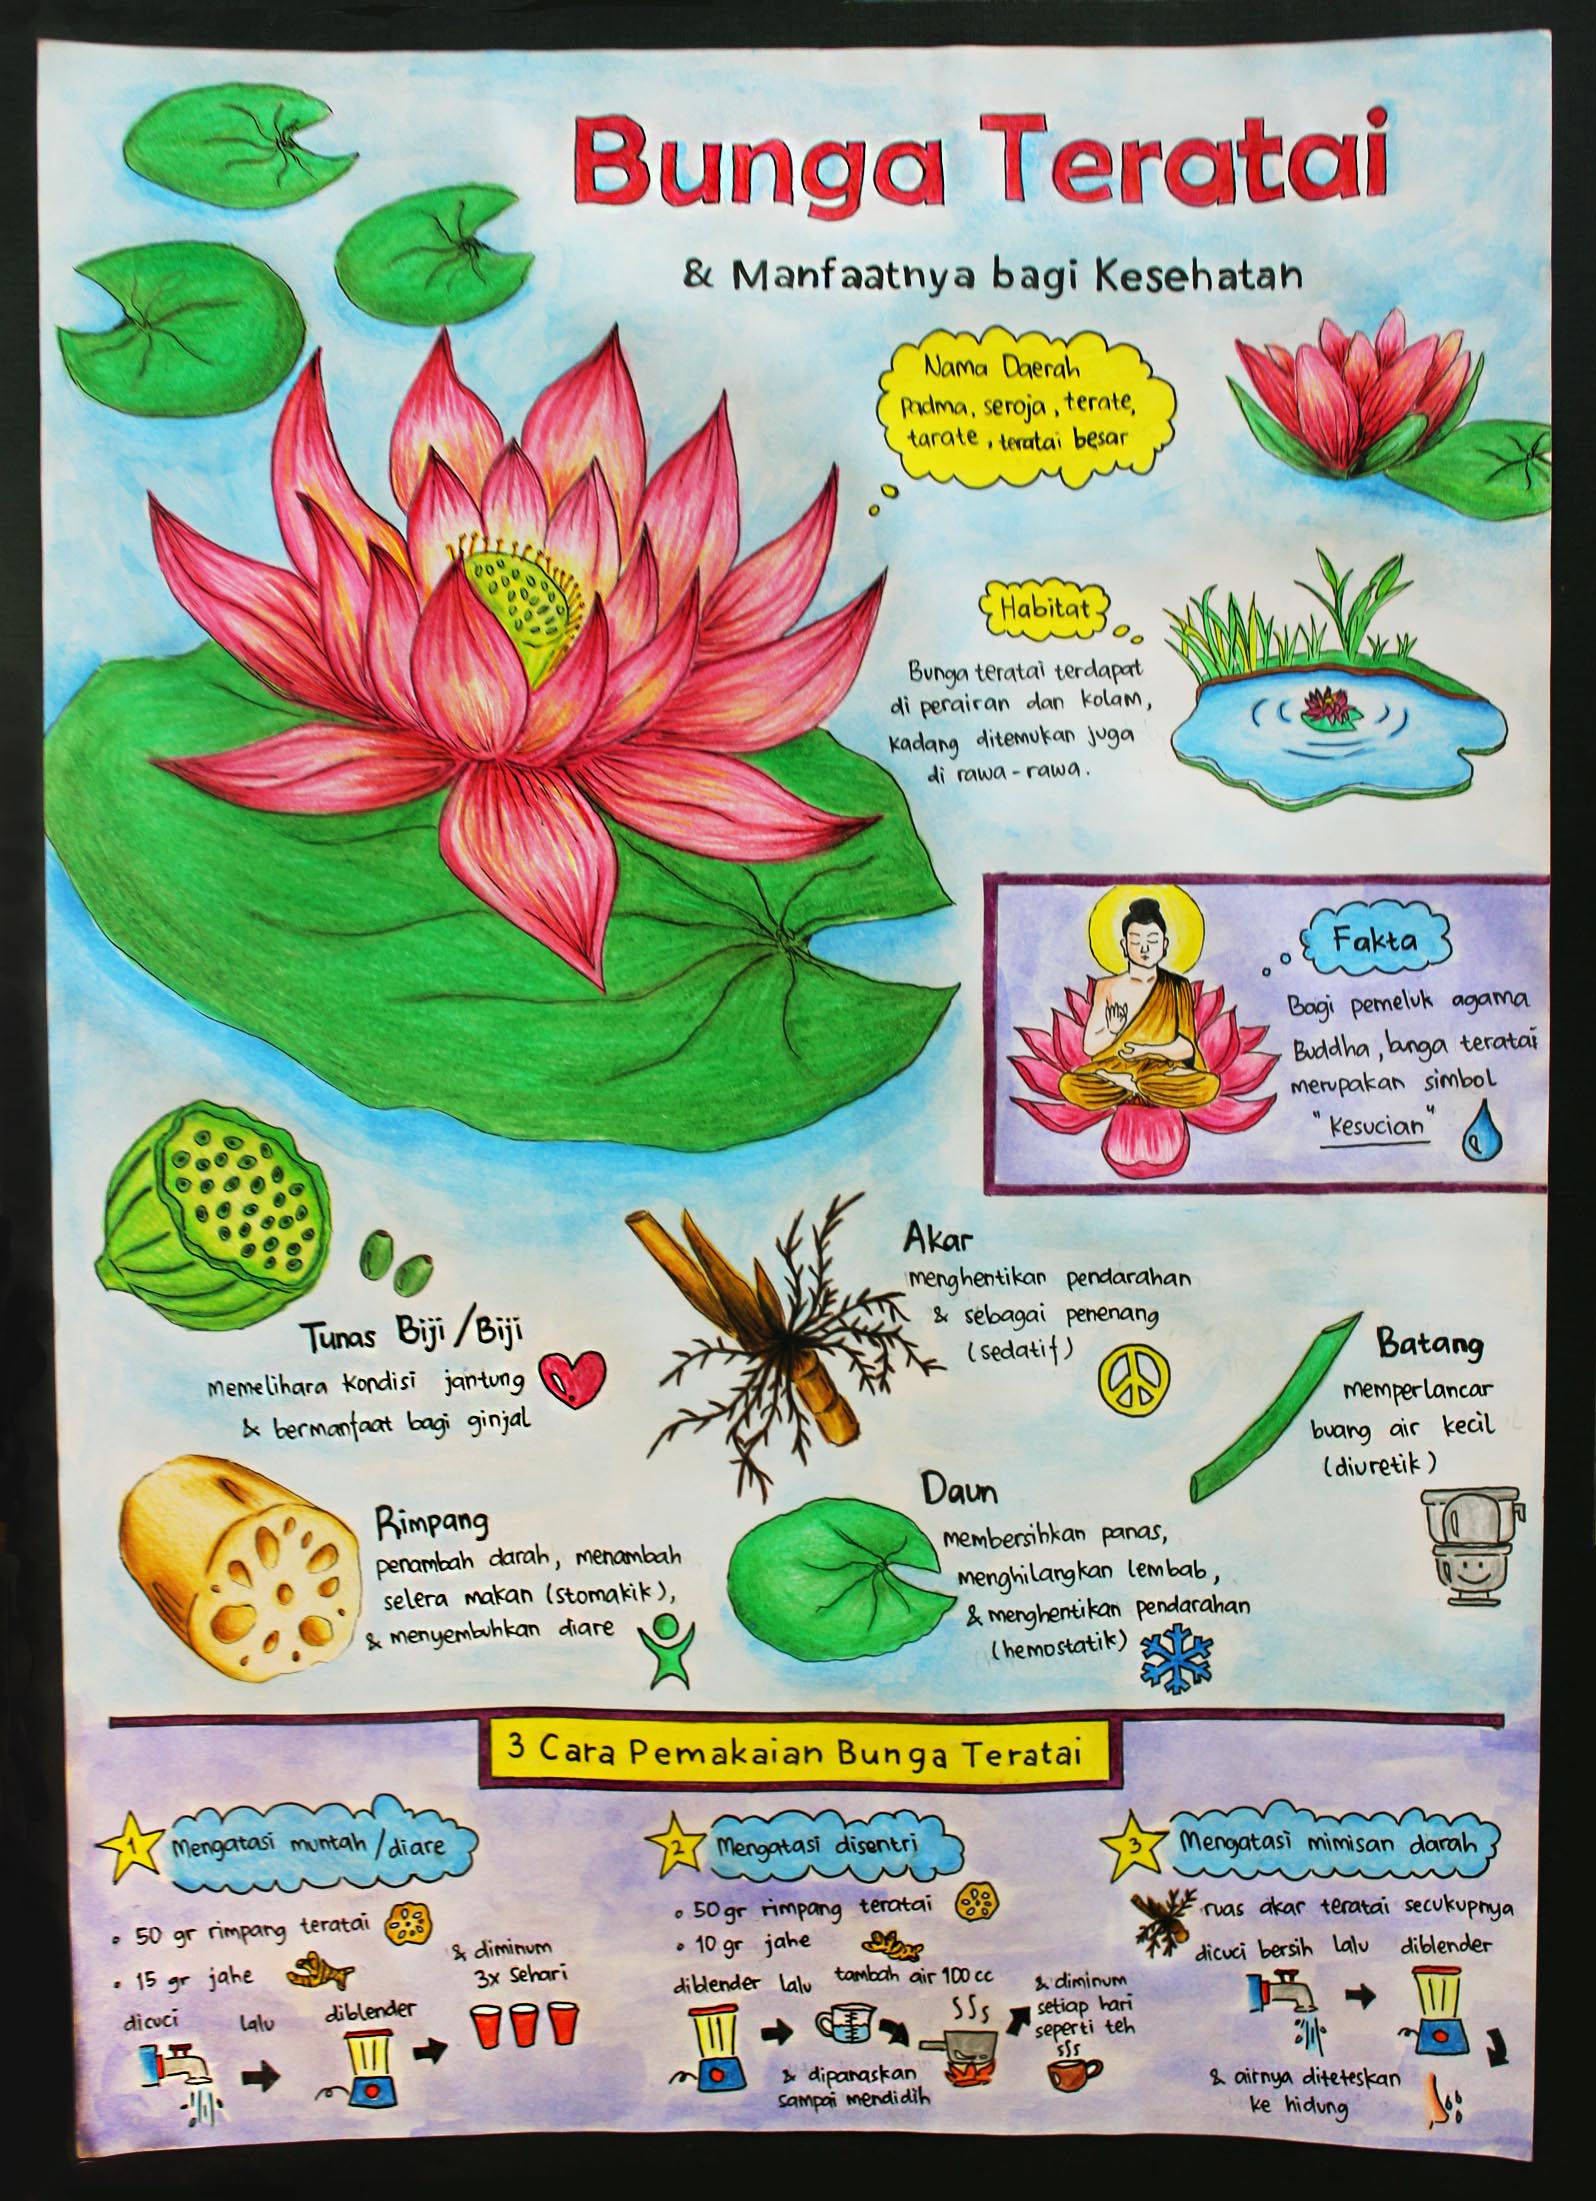 Bunga Teratai
& Manfaatnya bagi Kesehatan
Nama Daerah
Padma, seroja, terate,
tarate, teratai besar
Habitat
Bunga teratai terdapat
di perairan dan kolam,
kadang ditemukan juga
di rawa-rawa.
Fakta
Bagi pemeluk agama
Buddha, bunga teratai
merupakan simbol
"Kesucian"
Tunas Biji/Biji
memelihara kondisi jantung
& bermanfaat bagi ginjal
Akar
menghentikan pendarahan
& sebagai penenang
(sedatif)
Batang
memperlancar
buang air kecil
(diuretik)
Rimpang
penambah darah, menambah
selera makan (stomakik),
& menyembuhkan diare
Daun
membersihkan panas,
menghilangkan lembab,
& menghentikan pendarahan
(hemostatik)
3 Cara Pemakaian Bunga Teratai
1 Mengatasi muntah/diare
• 50 gr rimpang teratai
• 15 gr jahe
dicuci lalu diblender
& diminum
3x sehari
2 Mengatasi disentri
• 50 gr rimpang teratai
• 10 gr jahe
diblender lalu tambah air 100 cc
& dipanaskan
sampai mendidih
& diminum
setiap hari
seperti teh
3 Mengatasi mimisan darah
ruas akar teratai secukupnya
dicuci bersih lalu diblender
& airnya diteteskan
ke hidung